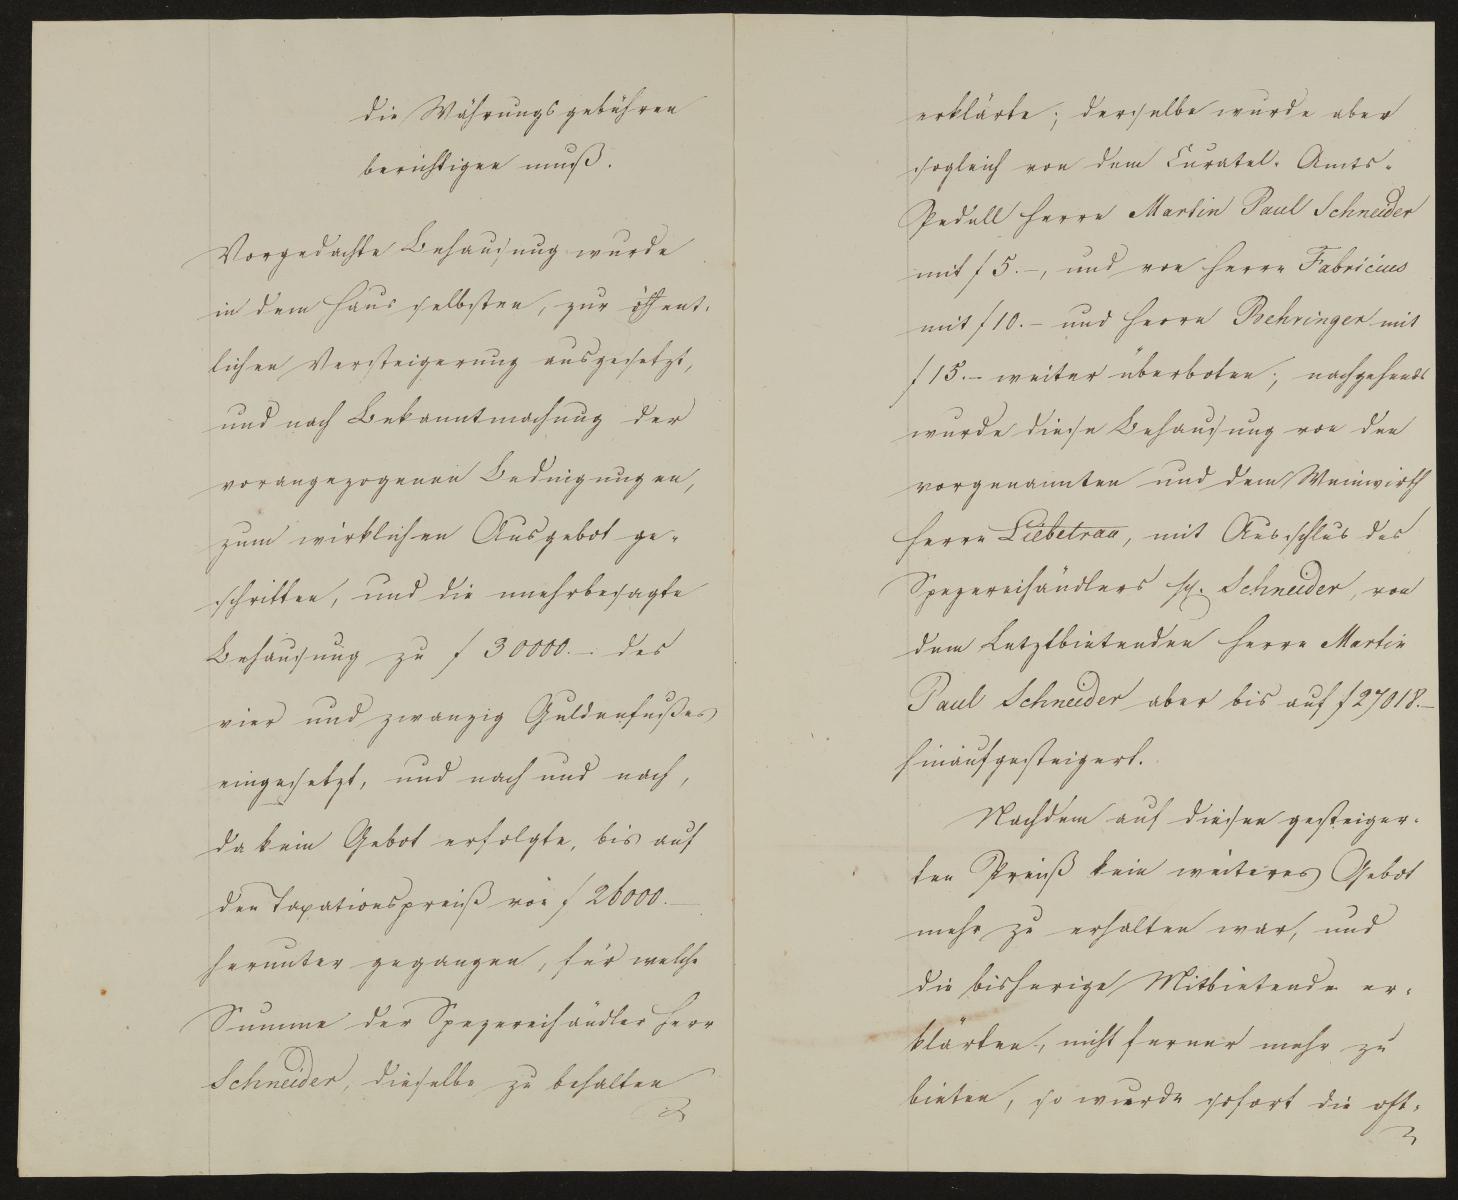 die Währungsgebühren
berichtigen muß.
Vorgedachte Behausung wurde
in dem Haus selbsten, zur öffent-
lichen Versteigerung ausgesetzt,
und nach Bekanntmachung der
vorangezogenen Bedingungen,
zum wirklichen Ausgebot ge-
schritten, und die mehrbesagte
Behausung zu f 30000.- des
vier und zwanzig Guldenfußes
eingesetzt, und nach und nach,
da kein Gebot erfolgte, bis auf
den Taxationspreiß von f 26000.-
herunter gegangen, für welche
Summe der Spezereihändler Herr
Schneider, dieselbe zu behalten
erklärte; derselbe wurde aber
sogleich von dem Curatel-Amts-
Pedell Herrn Martin Paul Schneider
mit f 5.-, und von Herrn Fabricius
mit f 10.- und Herrn Behringer mit
f 15.- weiter überboten; nachgehends
wurde diese Behausung von den
vorgenannten und dem Weinwirth
Herrn Liebetrau, mit Ausschlus des
Spezereihändlers H. Schneider, von
dem Letztbietenden Herrn Martin
Paul Schneider aber bis auf f 27018.-
hinaufgesteigert.
Nachdem auf diesen gesteiger-
ten Preiß kein weiteres Gebot
mehr zu erhalten war, und
die bisherige Mitbietende er-
klärten, nicht ferner mehr zu
bieten, so wurde sofort die oft-